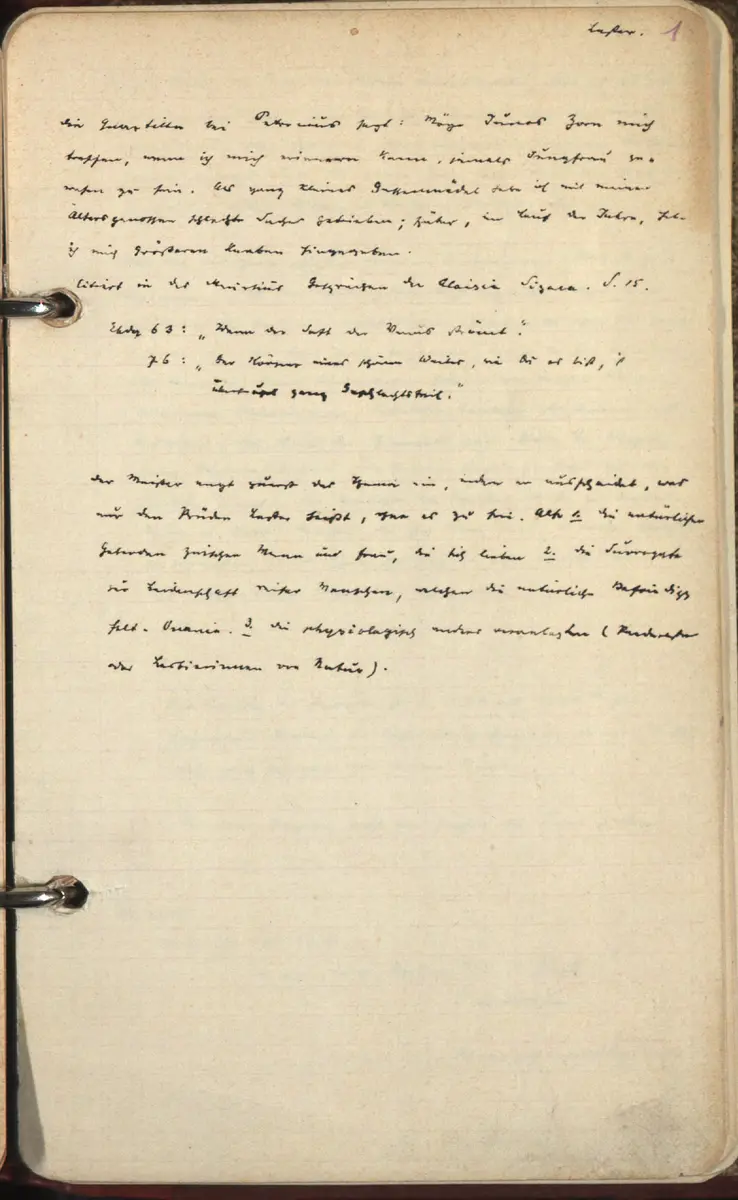 Laster. 1
die Quartilla bei Petronius sagt: Möge Junos Zorn mich
treffen, wenn ich mich erinnern kann, jemals Jungfrau ge-
wesen zu sein. Als ganz kleines Gassenmädel habe ich mit meinen
Altersgenossen schlechte Sachen getrieben; später, im Lauf der Jahre, hab
ich mich größeren Knaben hingegeben.
Citiert in des Meursius Gesprächen der Aloisia Sigaea. S. 15.
Ebdg 63: „Wenn der Saft der Venus strömt".
76: „Der Körper eines schönen Weibes, wie Du es bist, ist
überhaupt ganz Geschlechtsteil."
der Meister engt zuerst das Thema ein, indem er ausscheidet, was
nur den Prüden Laster heißt, ohne es zu sein. Also 1. die natürlichen
Geberden zwischen Mann und Frau, die sich lieben 2. die Surrogate
der Leidenschaft reifer Menschen, welchen die natürliche Befriedigg
fehlt. Onanie. 3. die physiologisch anders veranlagten (Paederasten
oder Lesbierinnen von Natur).